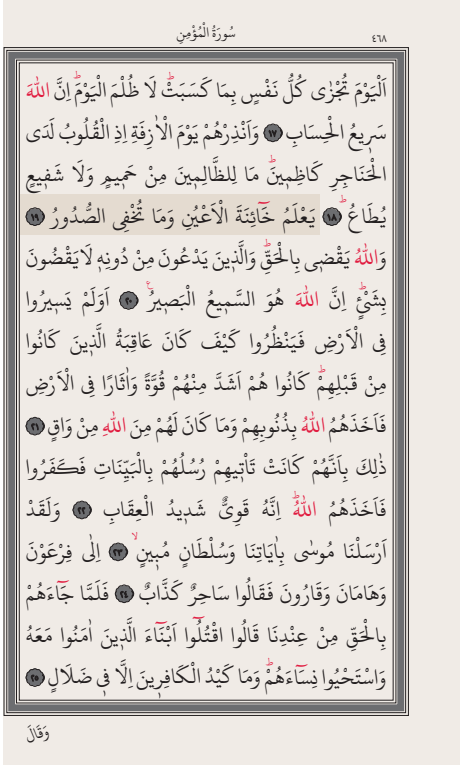 سُورَةُ الْمُؤْمِنِ
٤٦٨
اَلْيَوْمَ تُجْزٰى كُلُّ نَفْسٍ بِمَا كَسَبَتْۜ لَا ظُلْمَ الْيَوْمَۜ اِنَّ اللّٰهَ
سَرٖيعُ الْحِسَابِ ١٧ وَاَنْذِرْهُمْ يَوْمَ الْاٰزِفَةِ اِذِ الْقُلُوبُ لَدَى
الْحَنَاجِرِ كَاظِمٖينَۜ مَا لِلظَّالِمٖينَ مِنْ حَمٖيمٍ وَلَا شَفٖيعٍ
يُطَاعُۜ ١٨ يَعْلَمُ خَٓائِنَةَ الْاَعْيُنِ وَمَا تُخْفِى الصُّدُورُ ١٩
وَاللّٰهُ يَقْضٖى بِالْحَقِّۜ وَالَّذٖينَ يَدْعُونَ مِنْ دُونِهٖ لَا يَقْضُونَ
بِشَىْءٍۜ اِنَّ اللّٰهَ هُوَ السَّمٖيعُ الْبَصٖيرُ ٢٠ اَوَلَمْ يَسٖيرُوا
فِى الْاَرْضِ فَيَنْظُرُوا كَيْفَ كَانَ عَاقِبَةُ الَّذٖينَ كَانُوا
مِنْ قَبْلِهِمْۜ كَانُوا هُمْ اَشَدَّ مِنْهُمْ قُوَّةً وَاٰثَارًا فِى الْاَرْضِ
فَاَخَذَهُمُ اللّٰهُ بِذُنُوبِهِمْ وَمَا كَانَ لَهُمْ مِنَ اللّٰهِ مِنْ وَاقٍ ٢١
ذٰلِكَ بِاَنَّهُمْ كَانَتْ تَاْتٖيهِمْ رُسُلُهُمْ بِالْبَيِّنَاتِ فَكَفَرُوا
فَاَخَذَهُمُ اللّٰهُۜ اِنَّهُ قَوِىٌّ شَدٖيدُ الْعِقَابِ ٢٢ وَلَقَدْ
اَرْسَلْنَا مُوسٰى بِاٰيَاتِنَا وَسُلْطَانٍ مُبٖينٍۙ ٢٣ اِلٰى فِرْعَوْنَ
وَهَامَانَ وَقَارُونَ فَقَالُوا سَاحِرٌ كَذَّابٌ ٢٤ فَلَمَّا جَٓاءَهُمْ
بِالْحَقِّ مِنْ عِنْدِنَا قَالُوا اقْتُلُٓوا اَبْنَٓاءَ الَّذٖينَ اٰمَنُوا مَعَهُ
وَاسْتَحْيُوا نِسَٓاءَهُمْۜ وَمَا كَيْدُ الْكَافِرٖينَ اِلَّا فٖى ضَلَالٍ ٢٥
وَقَالَ